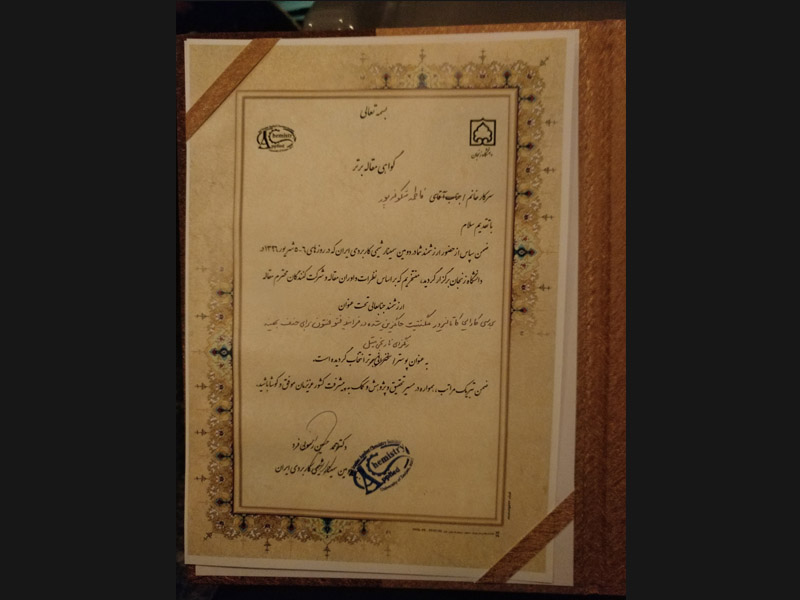 بسمه تعالی
Chemistry
Applied
دانشگاه زنجان
گواهی مقاله برتر
سرکار خانم / جناب آقای فاطمه
با تقدیم سلام
ضمن سپاس از حضور ارزشمند شما در دومین سمینار شیمی کاربردی ایران که در روزهای ۶-۵ شهریور ۱۳۹۶ در
دانشگاه زنجان برگزار گردید، مفتخریم که بر اساس نظرات داوران مقاله و شرکت کنندگان محترم مقاله
ارزشمند جنابعالی تحت عنوان
بررسی کارایی کاتالیزور مگنتیت جایگزین شده در فرآیند فنتون برای حذف
به عنوان پوستر / سخنرانی برتر انتخاب گردیده است.
ضمن تبریک مراتب، همواره در مسیر تحقیق و پژوهش و کمک به پیشرفت کشور عزیزمان موفق و کوشا باشید.
دکتر محمد حسین رسولی فرد
دومین سمینار شیمی کاربردی ایران
Chemistry
Applied